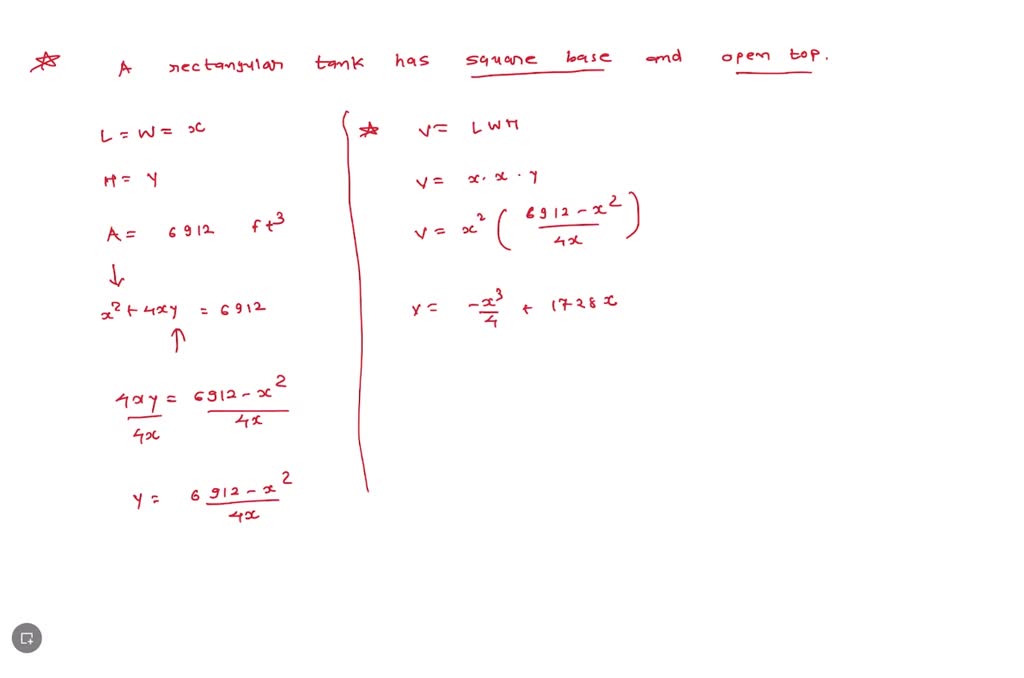 ☆ A rectangular tank has square base and open top.
L = W = x
H = y
A = 6912 ft³
↓
x² + 4xy = 6912
↑
4xy/4x = 6912 - x²/4x
y = 6912 - x²/4x
☆ V = LWH
V = x · x · y
V = x² (6912 - x²/4x)
V = -x³/4 + 1728x